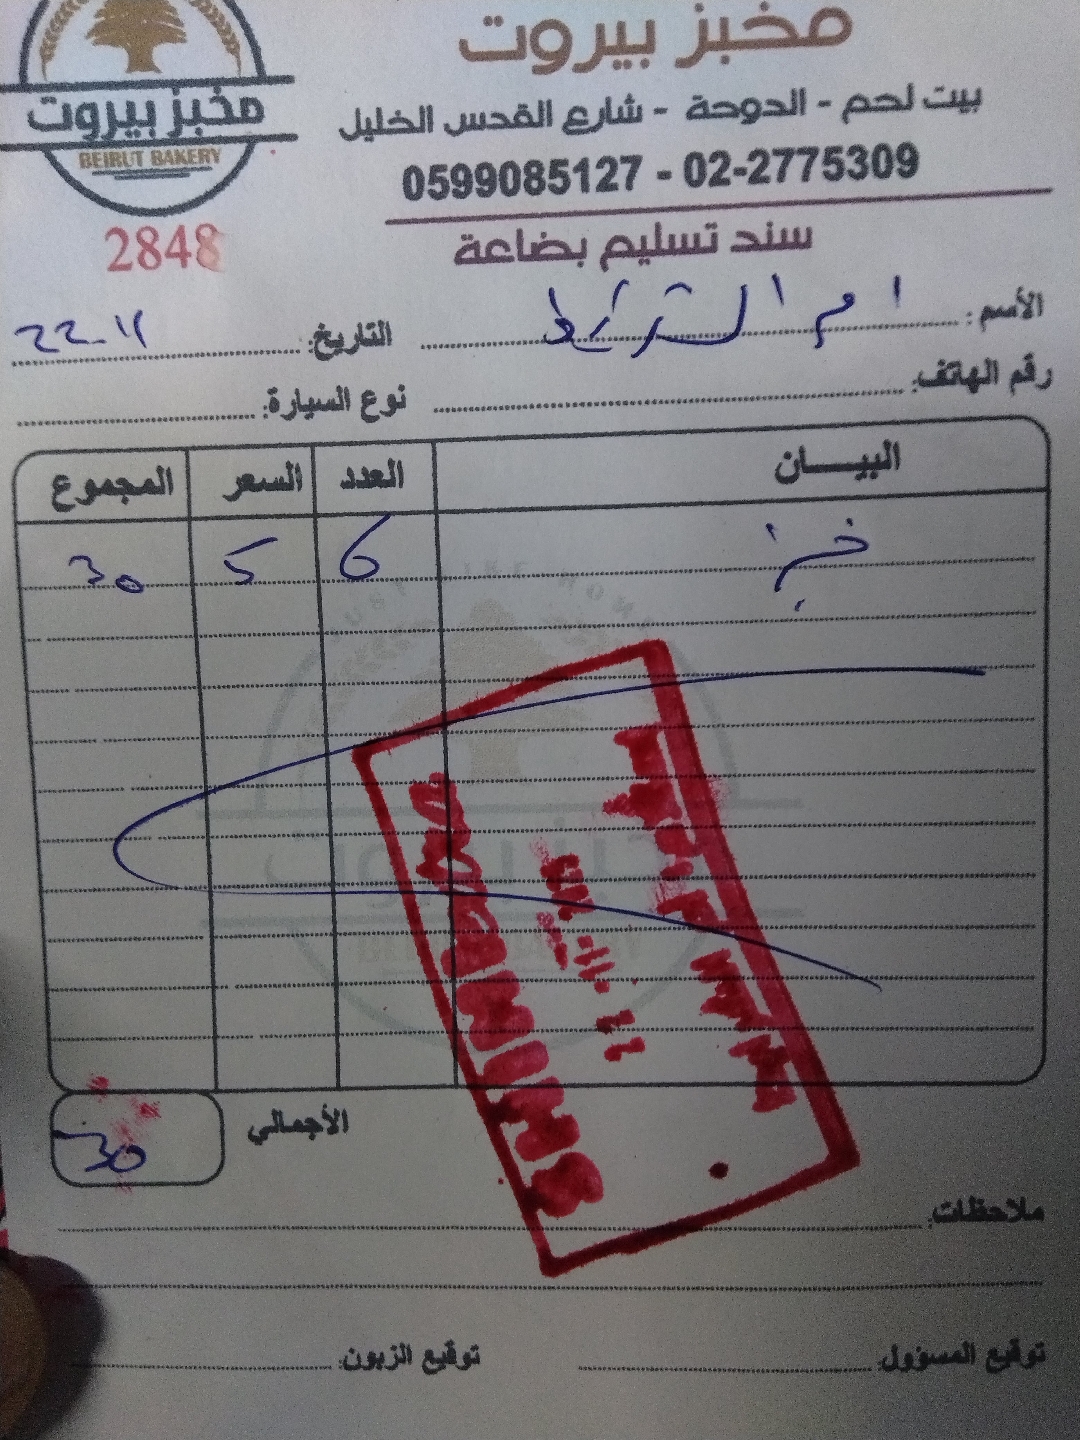 مخبز بيروت
مخبز بيروت
BEIRUT BAKERY
بيت لحم - الدوحة - شارع القدس الخليل
0599085127 - 02-2775309
2848
سند تسليم بضاعة
الأسم: ام
التاريخ: 22-11
رقم الهاتف:
نوع السيارة:
البيـــــان العدد السعر المجموع
خبز 6 5 30
الأجمالي 30
ملاحظات:
توقيع المسؤول: توقيع الزبون: